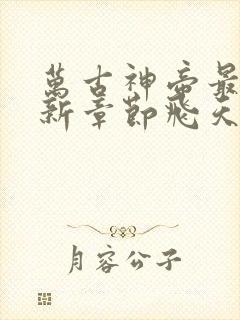 萬古神帝最
新章節飛天
月容公子